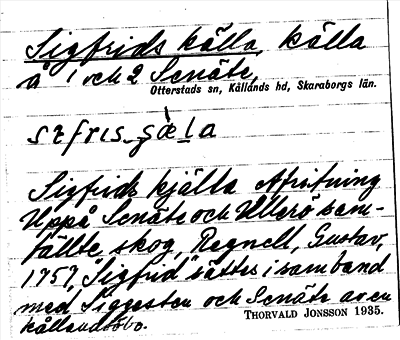 Sigfrids källa, källa
å 1 och 2 Senäte,
Otterstads sn, Kållands hd, Skaraborgs län.
Sigfrids kjälla Afritning
Uppå Senäte och Ullerö sam-
fällte skog, Regnell, Gustav,
1757, "Sigfrid" sättes i samband
med Siggesten och Senäte av en
kållandsbo.
THORVALD JONSSON 1935.